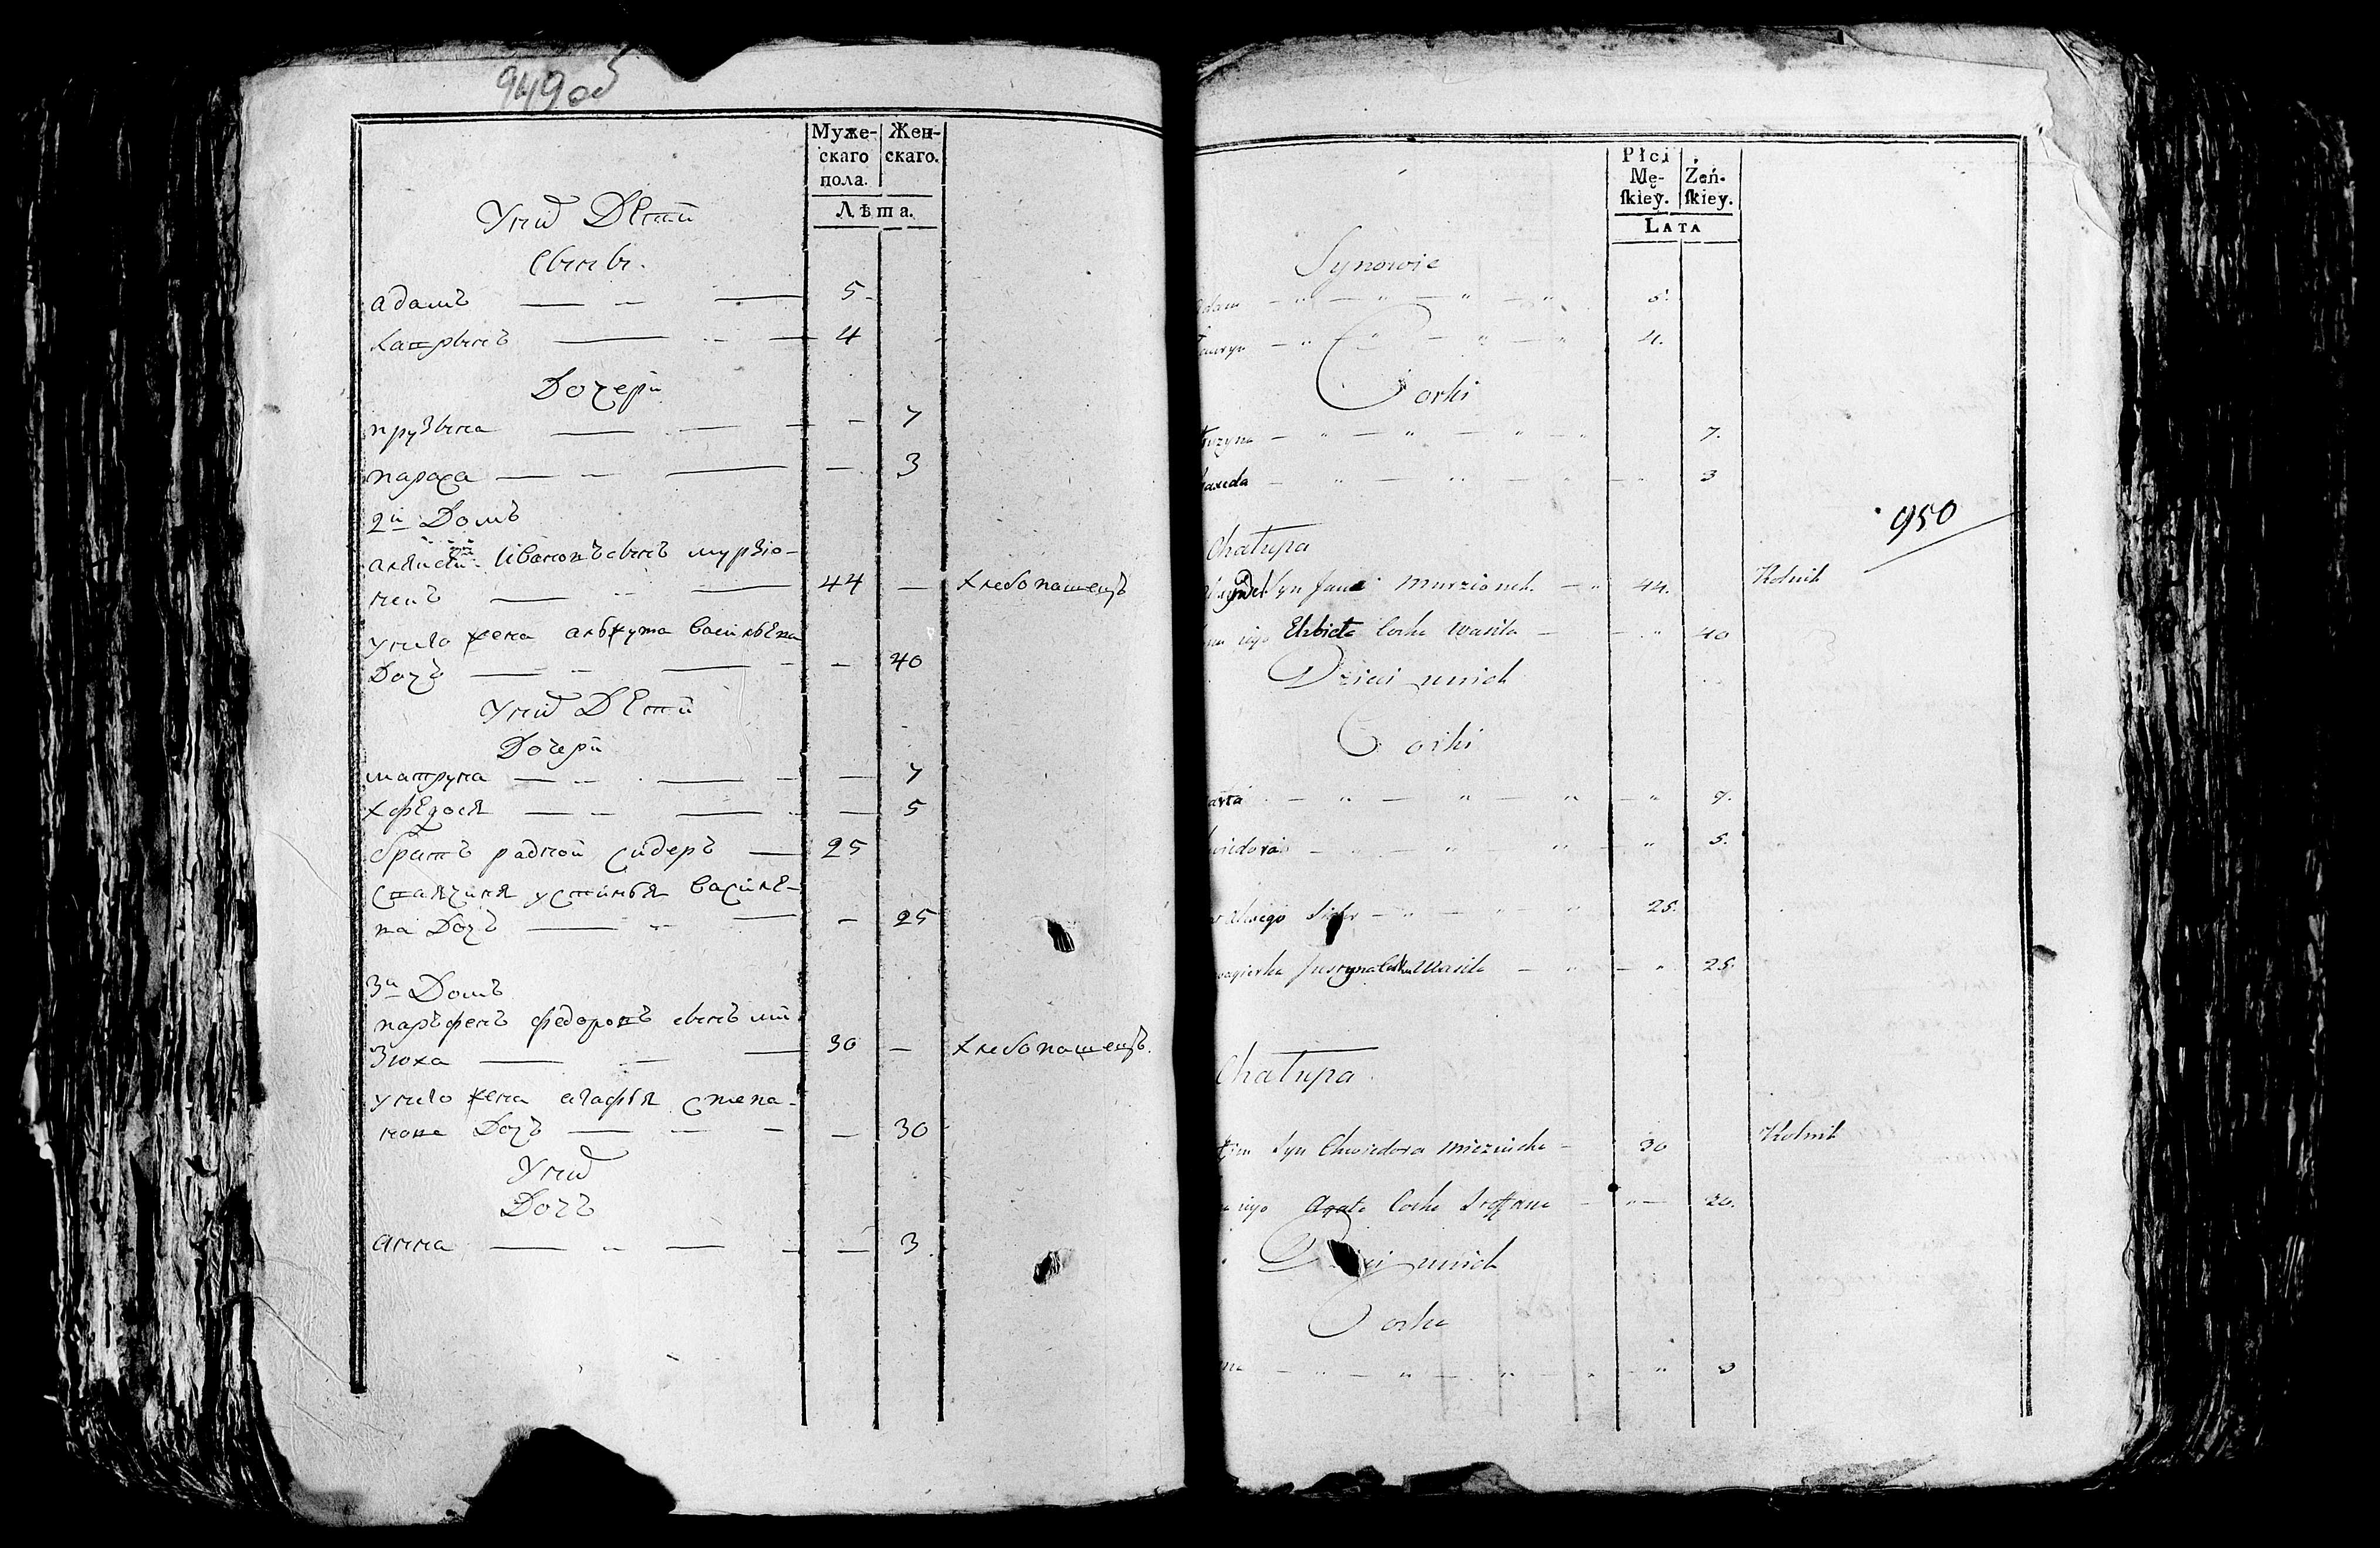 949об
Муже-
скаго
пола.
Жен-
скаго.
Лѣта.
Унихъ Дети
Сыны.
адамъ — — — 5
— — — 4
Дочери
прузына — — — 7
параха — — — 3
2й Домъ
Ивановъ сынъ мурзіо-
нокъ — — — 44 — хлебопашецъ
унего жена васильева
Дочь — — — 40
Унихъ Дети
Дочери
матруна — — — 7
хфедося — — — 5
братъ радной сидеръ — 25
устинья василе-
ва Дочь — — — 25
3й Домъ
паръфенъ федоровъ сынъ ми
зюка — — — 30 — хлебопашецъ.
унего жена агафья степа-
нова Дочь — — — 30
Унихъ
Дочь
анна — — — 3
Płci
Mę-
skiey.
Żeń-
skiey.
LATA
Synowie
Adam — " — " — 5.
4.
Corki
7.
3
950
Chałupa
Syn Jana Murzionek — 44. Rolnik
iego Elżbieta Corka Wasila — 40
Dzieci unich
Corki
7.
5.
25.
Justyna Corka Wasila — 25.
Chałupa
Syn Chwiedora — 30 Rolnik
iego Agata Corka Steffana — 30.
Dzieci unich
Corka
3